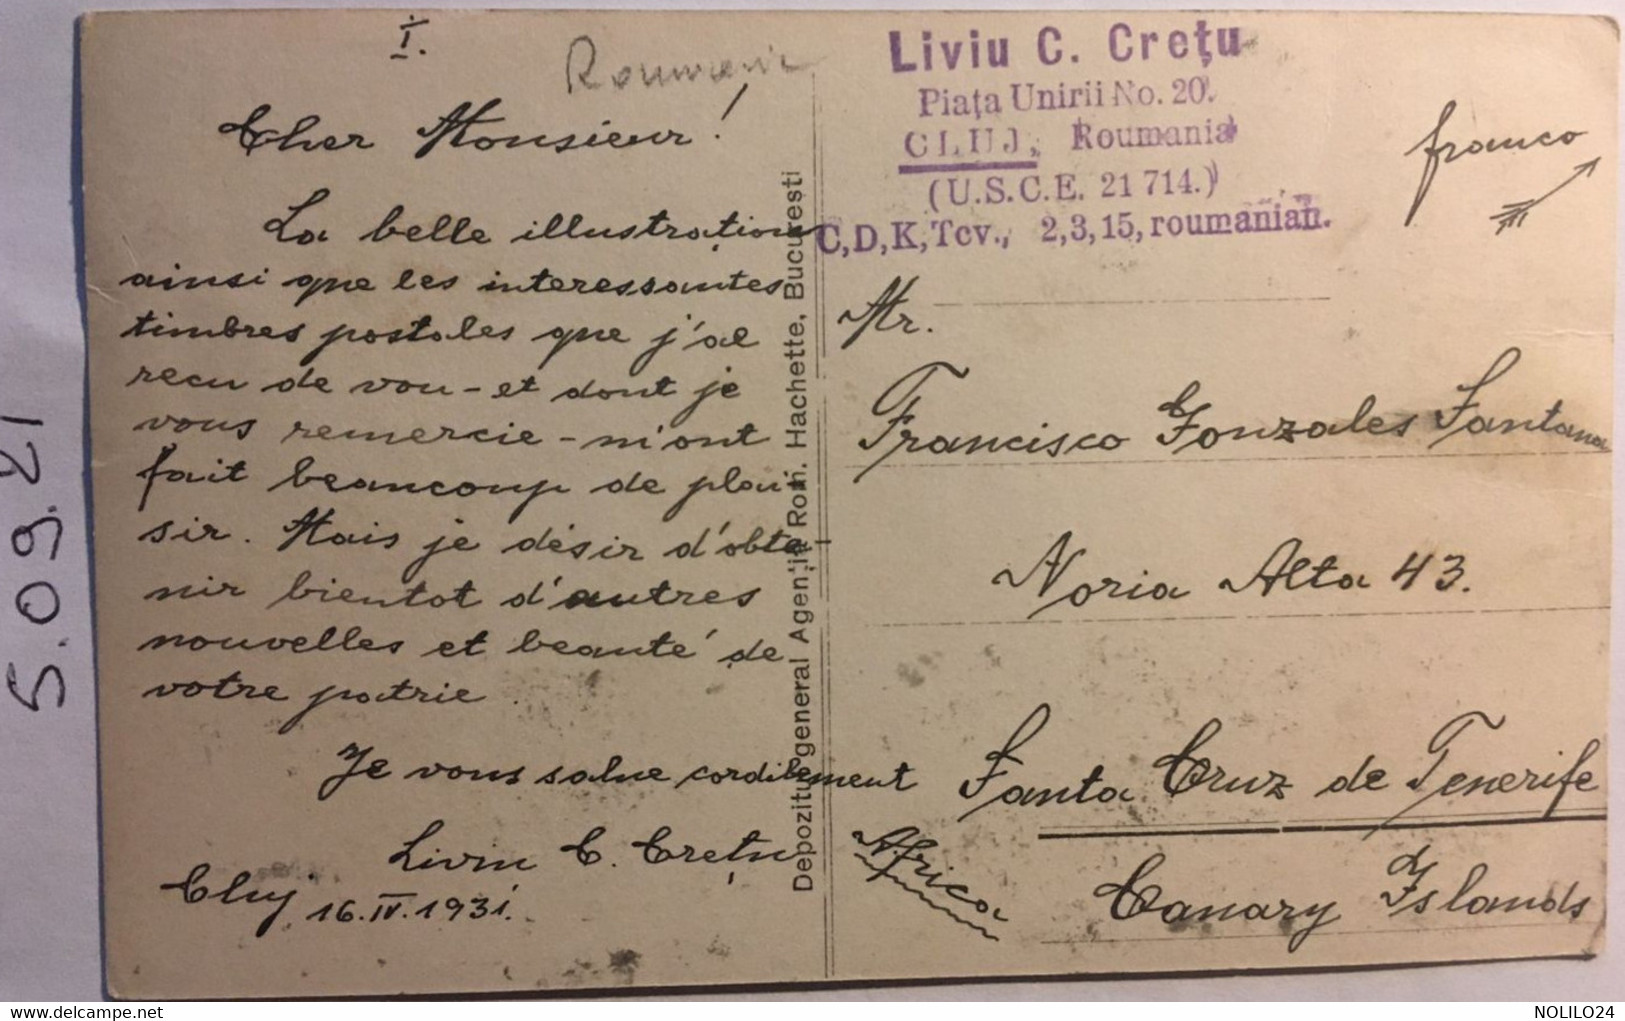 I.
Roumanie
Cher Monsieur!
La belle illustration
ainsi que les interessantes
timbres postales que j'ai
recu de vou - et dont je
vous remercie - m'ont
fait beaucoup de plai-
sir. Mais je désir d'obte-
nir bientot d'autres
nouvelles et beauté de
votre patrie.
Je vous salue cordilement
Liviu C. Crețu
Cluj 16.IV.1931.
Depozitul general Agenția Rom. Hachette, București
Liviu C. Crețu
Piața Unirii No. 20.
CLUJ, Roumania
(U.S.C.E. 21 714.)
C,D,K,Tcv., 2,3,15, roumanian.
franco
Mr.
Francisco Gonzales Santana
Noria Alta 43.
Santa Cruz de Tenerife
Africa
Canary Islands
5.09.21
delcampe.net
NOLILO24